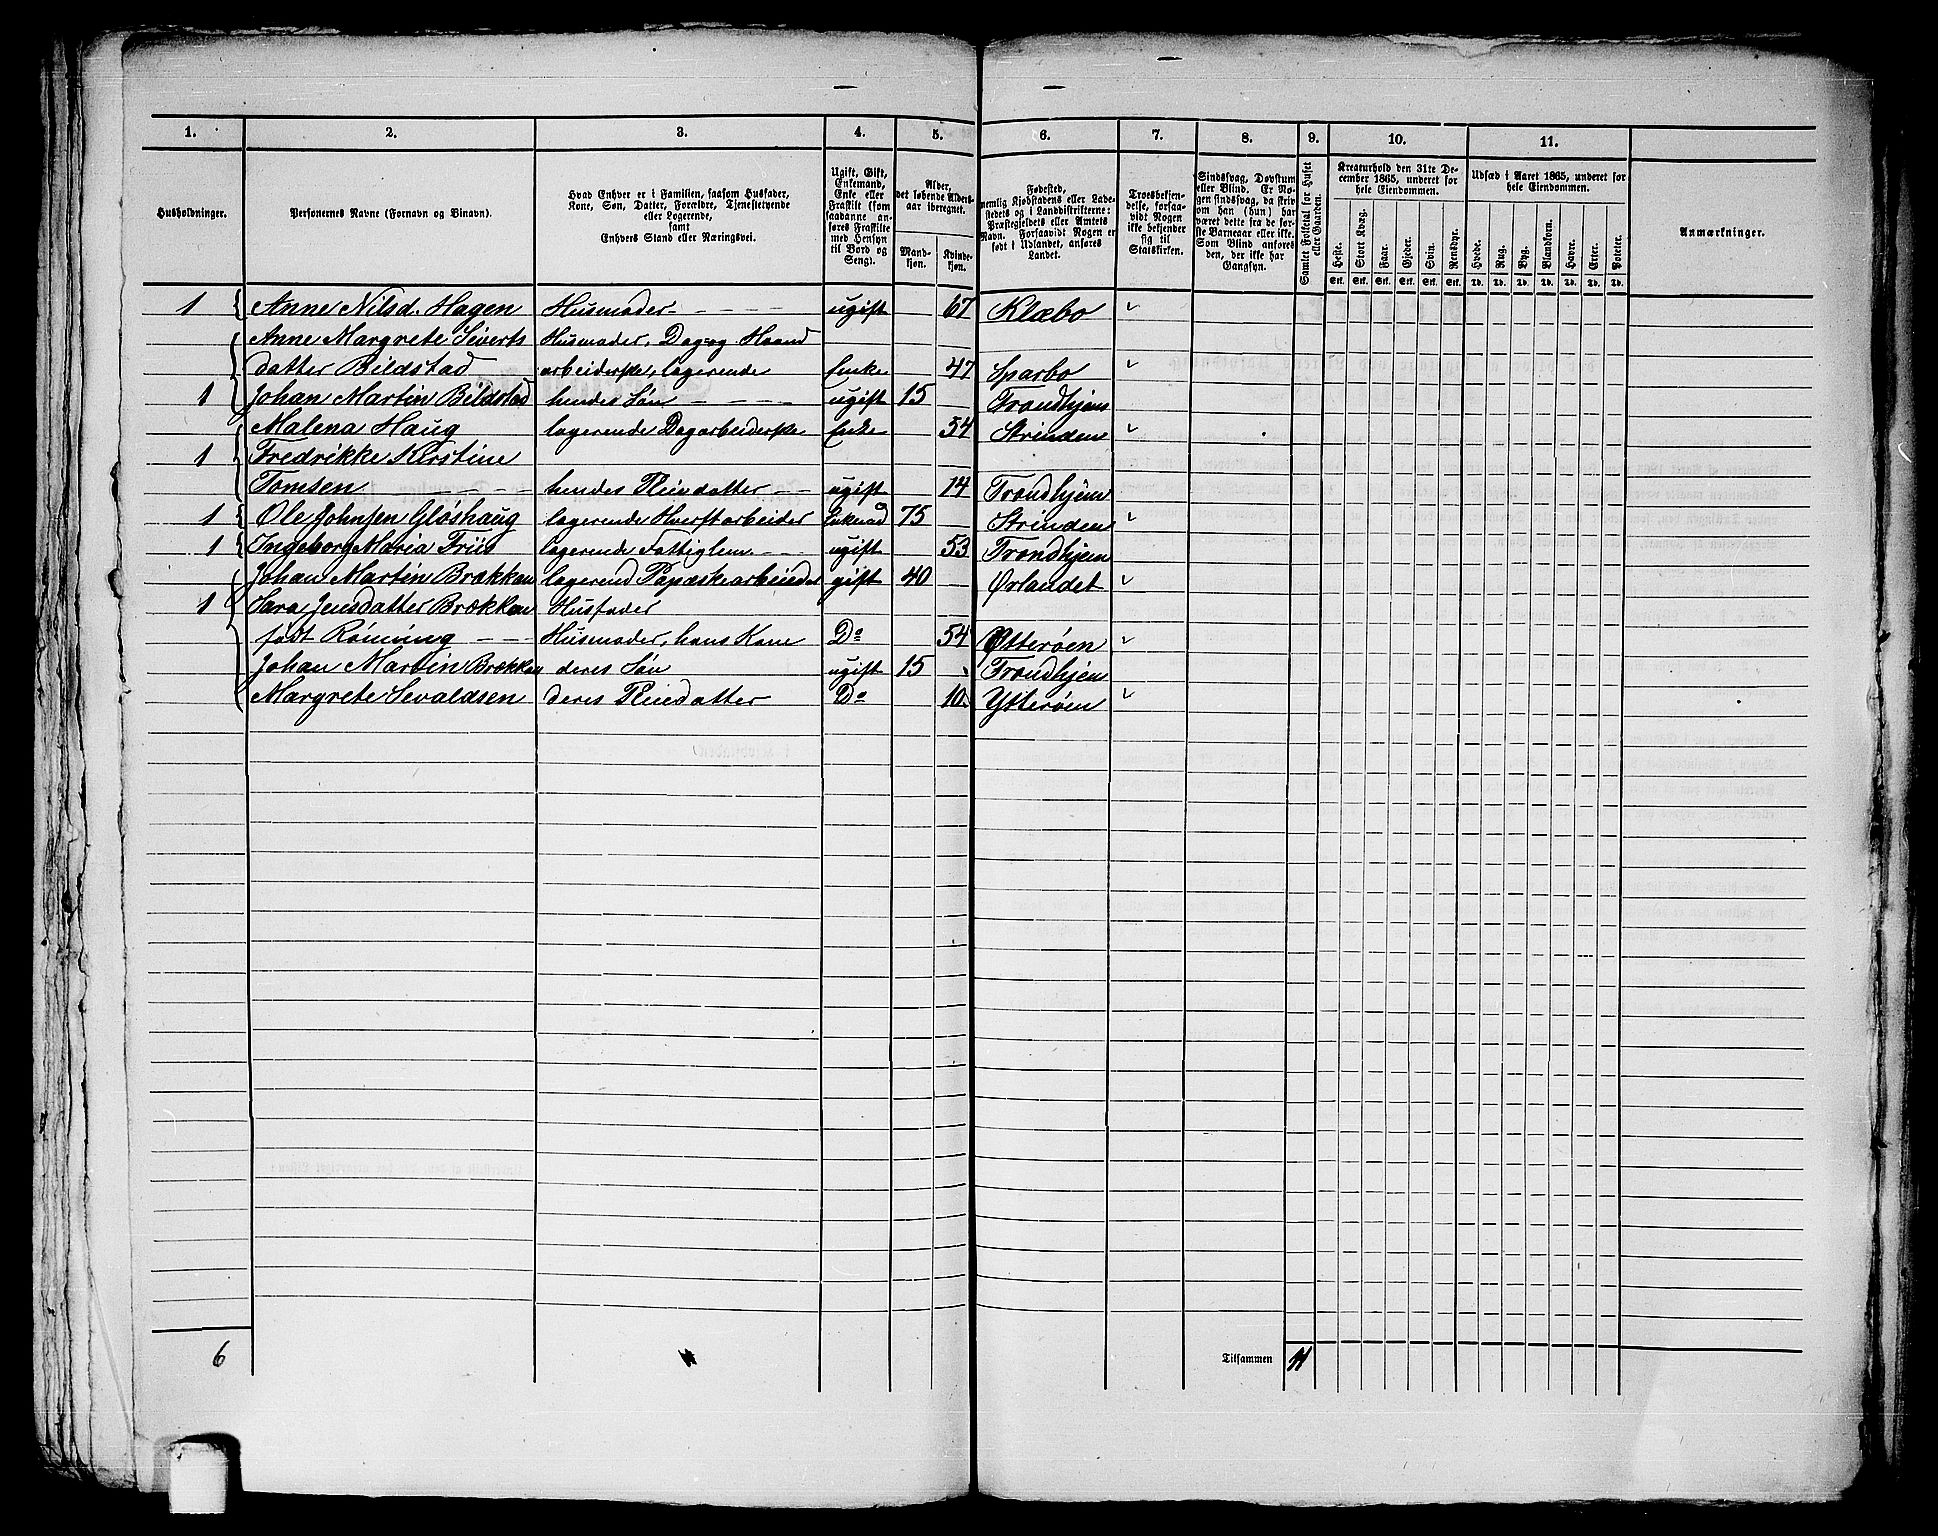 1. 2. 3. 4. 5. 6. 7. 8. 9. 10. 11.
Husholdninger.
Personernes Navne (Fornavn og Binavn).
Hvad Enhver er i Familien, saasom Husfader,
Kone, Søn, Datter, Forældre, Tjenestetyende
eller Logerende,
samt
Enhvers Stand eller Næringsvei.
Ugift, Gift,
Enkemand,
Enke eller
Fraskilt (som
saadanne an-
føres Fraskilte
med Hensyn
til Bord og
Seng).
Alder,
det løbende Alders-
aar iberegnet.
Mand-
kjøn.
Kvinde-
kjøn.
Fødested,
nemlig Kjøbstadens eller Lade-
stedets og i Landdistrikterne:
Præstegjeldets eller Amtets
Navn. Forsaavidt Nogen er
født i Udlandet, anføres
Landet.
Troesbekjen-
delse, forsaa-
vidt Nogen
ikke bekjender
sig til
Statskirken.
Sindssvag, Døvstum
eller Blind. Er No-
gen sindssvag, da skriv
om han (hun) har
været dette fra de før-
ste Barneaar eller ikke.
Som Blind anføres
den, der ikke har
Gangsyn.
Samlet Folketal for Huset
eller Gaarden.
Kreaturhold den 31te De-
cember 1865, underet for
hele Eiendommen.
Heste. Stort Kvæg. Faar. Gjeder. Svin. Rensdyr.
Stk. Stk. Stk. Stk. Stk. Stk.
Udsæd i Aaret 1865, underet for
hele Eiendommen.
Hvede. Rug. Byg. Blandkorn. Havre. Erter. Poteter.
Td. Td. Td. Td. Td. Td. Td.
Anmærkninger.
1 Anne Nilsd. Hagen Husmoder ugift 67 Klæbo
Anne Margrete Siverts Husmoder, Dag og Haand
datter Bildstad arbeiderske, logerende Enke 47 Sparbo
1 Johan Martin Bildstad hendes Søn ugift 15 Trondhjem
Malena Haug logerende Dagarbeiderske Enke 54 Strinden
1 Fredrikke Kirstine
Tomsen hendes Pleiedatter ugift 14 Trondhjem
1 Ole Johnsen Gløshaug logerende Hverftarbeider Enkmd 75 Strinden
1 Ingeborg Maria Friis logerende Fattiglem ugift 53 Trondhjem
Johan Martin Brækken logerend gift 40 Ørlandet
1 Sara Jensdatter Brækken Husfader
født Røming Husmoder, hans Kone Do 54 Ytterøen
Johan Martin Brækken deres Søn ugift 15 Trondhjem
Margrete Sevaldsen deres Pleiedatter Do 10 Ytterøen
6 Tilsammen 11